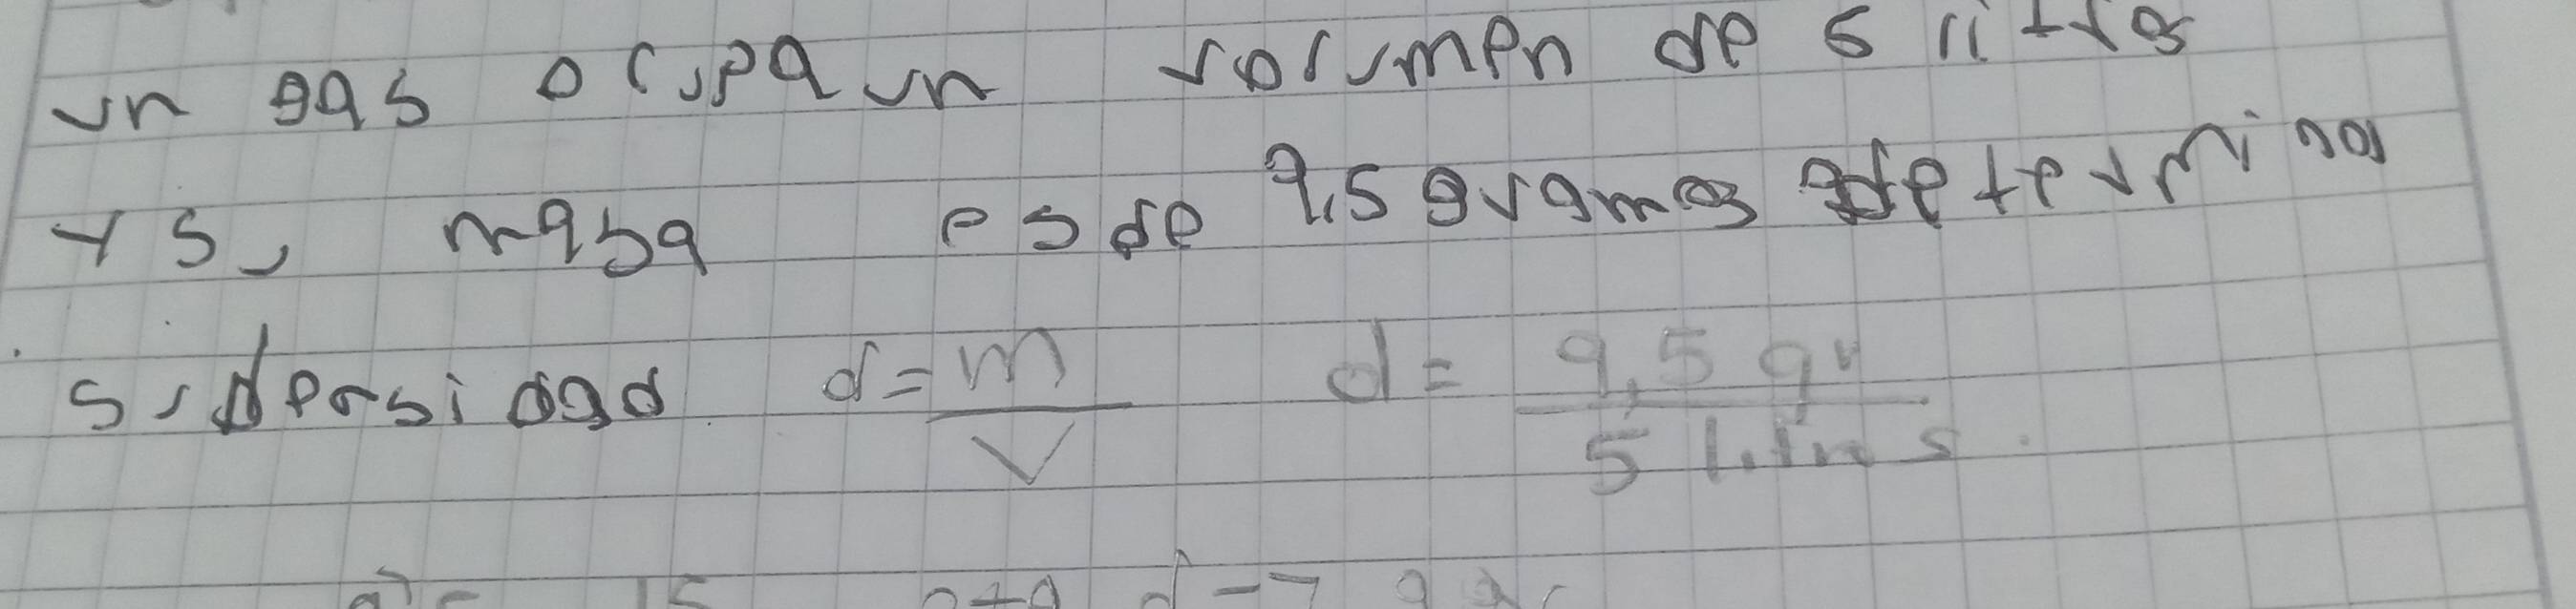 un gas ocupa un volumen de 5 litros
y su masa es de 9,5 gramos determina
su densidad d = m / V d = 9,5 gr / 5 litros.